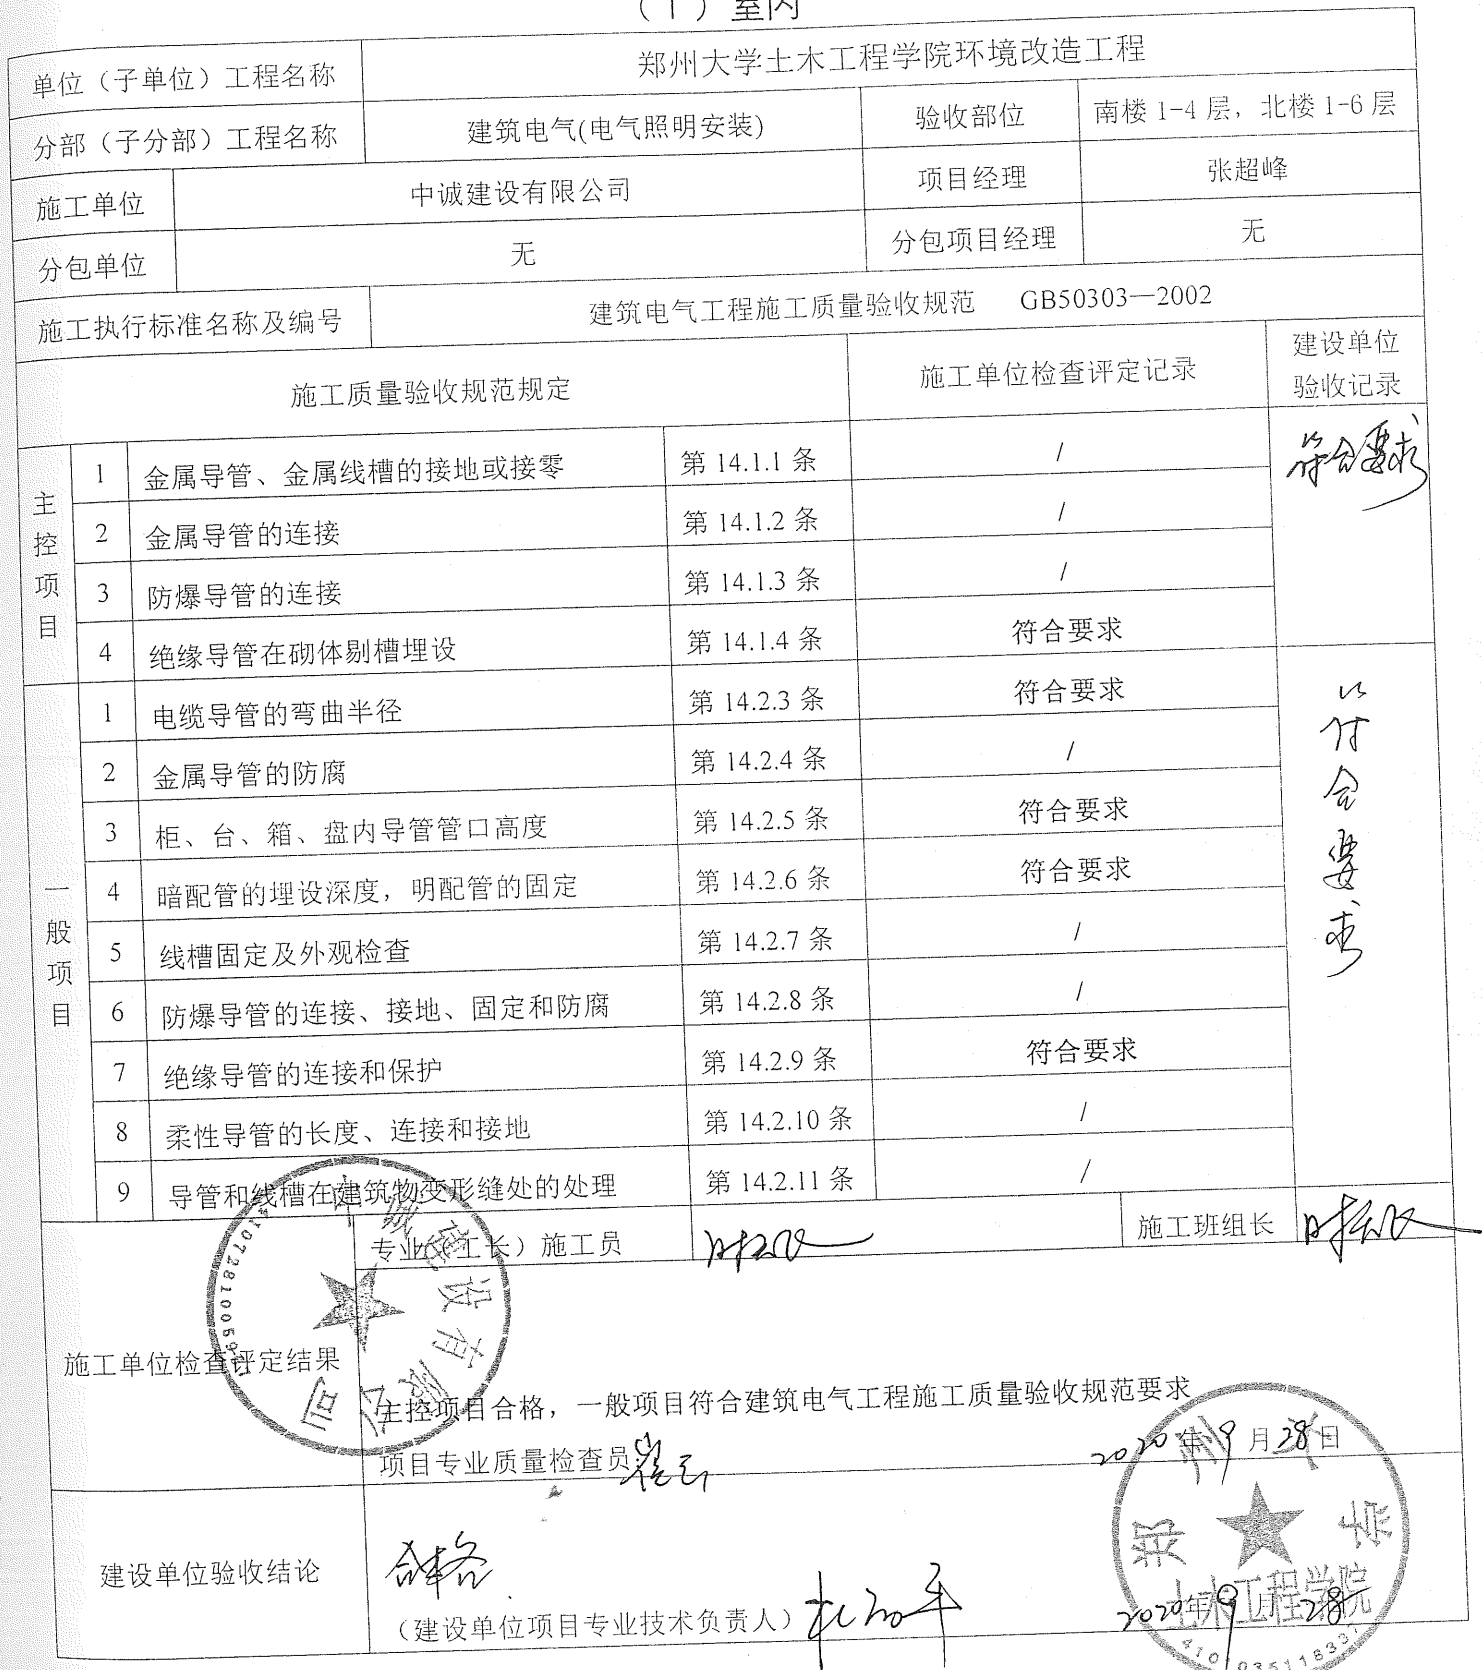 （1）室内
单位（子单位）工程名称 郑州大学土木工程学院环境改造工程
分部（子分部）工程名称 建筑电气(电气照明安装) 验收部位 南楼 1-4 层，北楼 1-6 层
施工单位 中诚建设有限公司 项目经理 张超峰
分包单位 无 分包项目经理 无
施工执行标准名称及编号 建筑电气工程施工质量验收规范 GB50303—2002
施工质量验收规范规定 施工单位检查评定记录 建设单位验收记录
主控项目
1 金属导管、金属线槽的接地或接零 第 14.1.1 条 / 符合要求
2 金属导管的连接 第 14.1.2 条 /
3 防爆导管的连接 第 14.1.3 条 /
4 绝缘导管在砌体剔槽埋设 第 14.1.4 条 符合要求
一般项目
1 电缆导管的弯曲半径 第 14.2.3 条 符合要求 符合要求
2 金属导管的防腐 第 14.2.4 条 /
3 柜、台、箱、盘内导管管口高度 第 14.2.5 条 符合要求
4 暗配管的埋设深度，明配管的固定 第 14.2.6 条 符合要求
5 线槽固定及外观检查 第 14.2.7 条 /
6 防爆导管的连接、接地、固定和防腐 第 14.2.8 条 /
7 绝缘导管的连接和保护 第 14.2.9 条 符合要求
8 柔性导管的长度、连接和接地 第 14.2.10 条 /
9 导管和线槽在建筑物变形缝处的处理 第 14.2.11 条 /
施工单位检查评定结果 专业（工长）施工员 施工班组长
中诚建设有限公司
主控项目合格，一般项目符合建筑电气工程施工质量验收规范要求
项目专业质量检查员 2020年9月28日
建设单位验收结论 合格
（建设单位项目专业技术负责人） 2020年9月28
郑州大学
土木工程学院